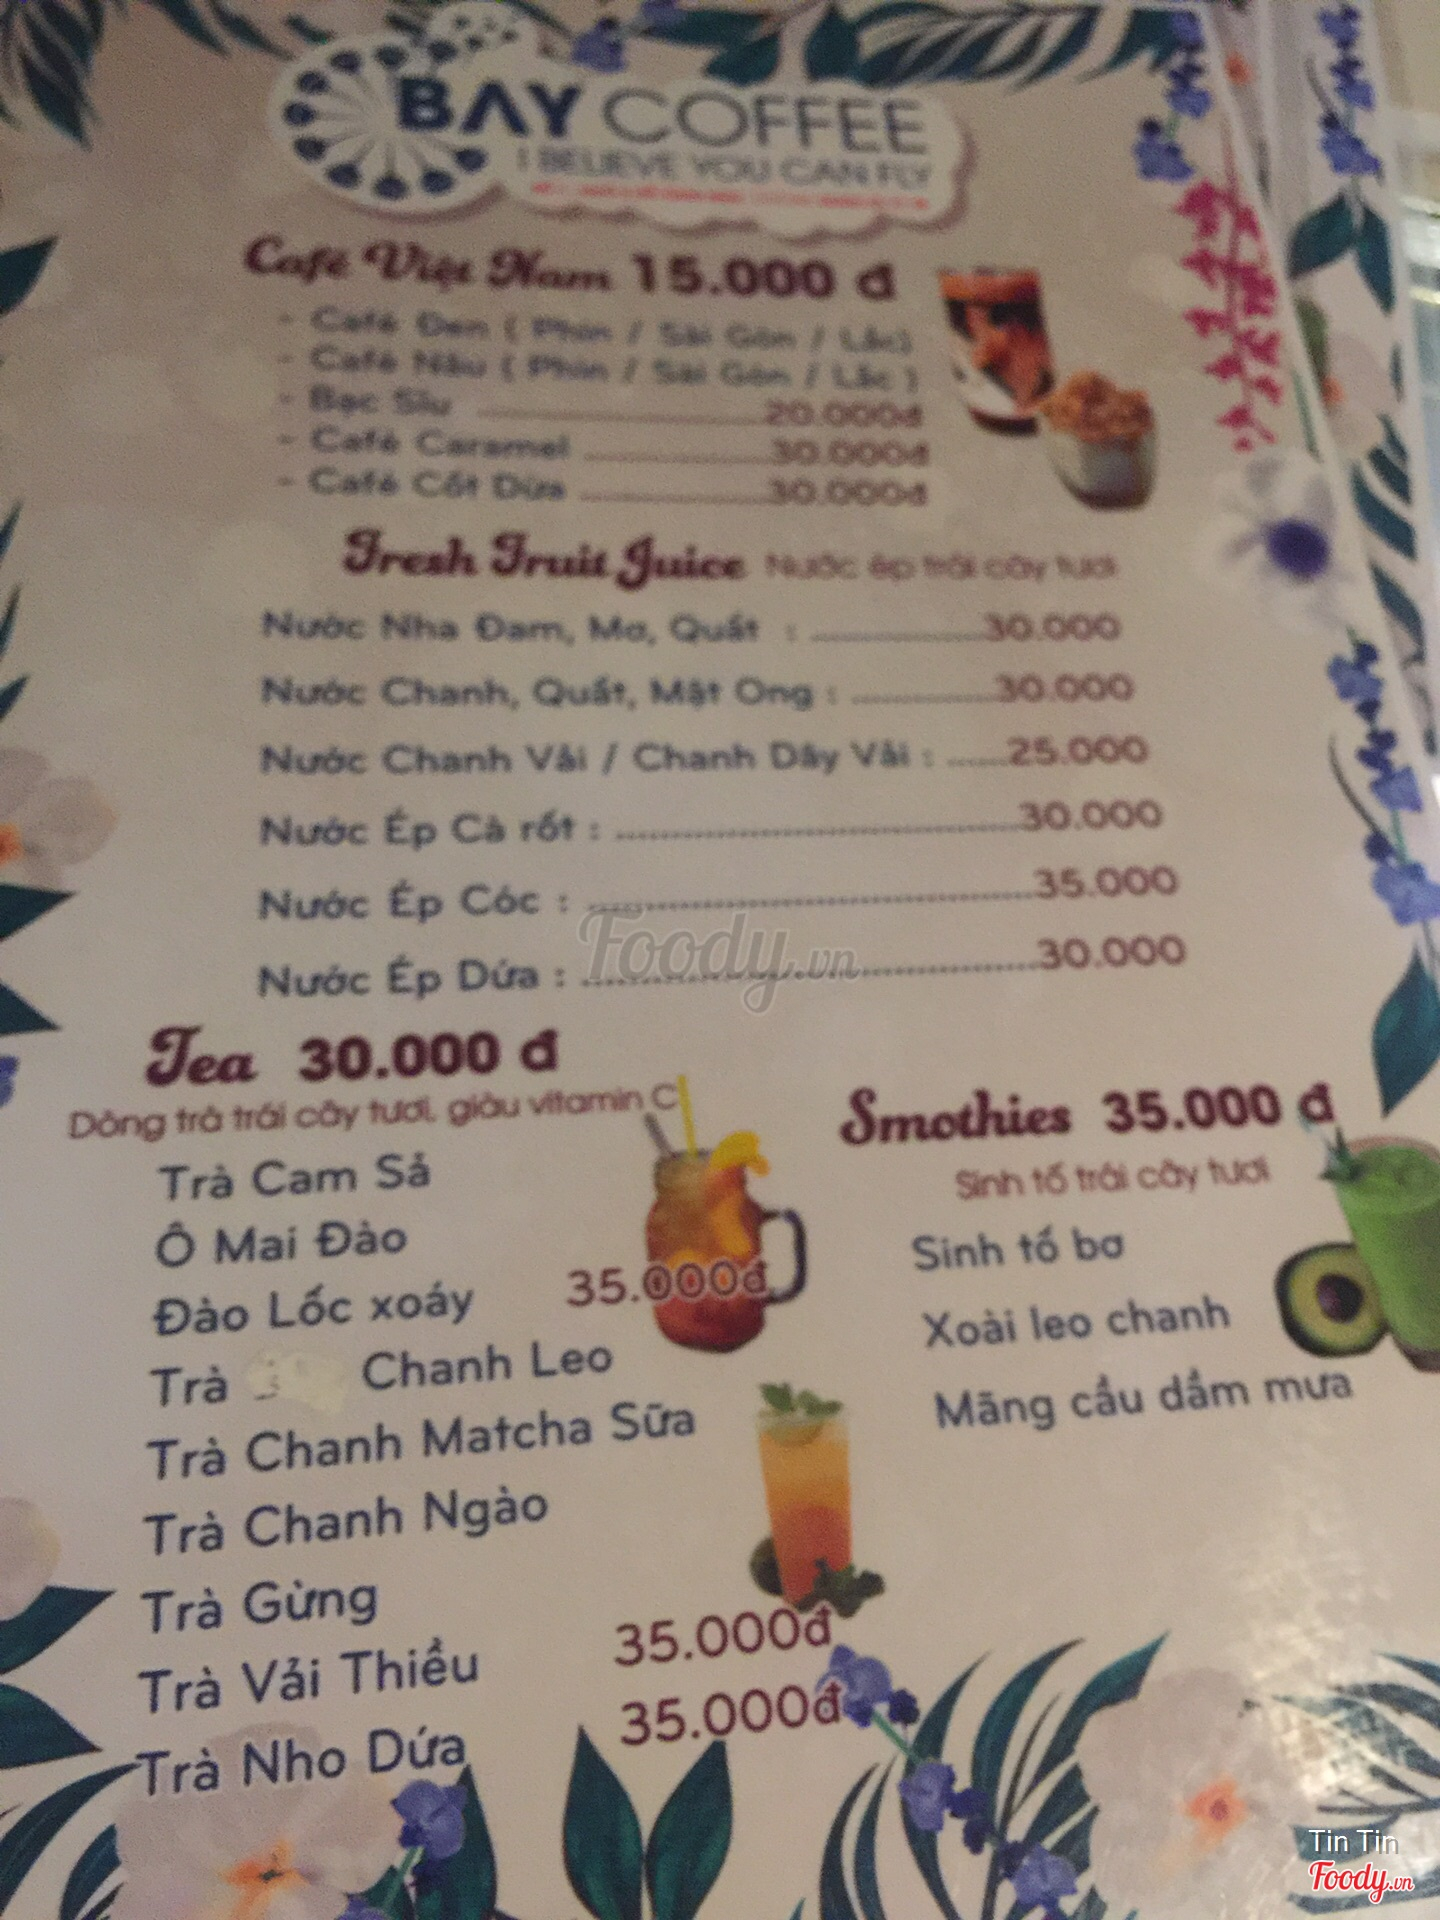 BAY COFFEE
I BELIEVE YOU CAN FLY
Café Việt Nam 15.000 đ
- Café Đen ( Phin / Sài Gòn / Lắc)
- Café Nâu ( Phin / Sài Gòn / Lắc )
- Bạc Sỉu 20.000đ
- Café Caramel 30.000đ
- Café Cốt Dừa 30.000đ
Fresh Fruit Juice Nước ép trái cây tươi
Nước Nha Đam, Mơ, Quất : 30.000
Nước Chanh, Quất, Mật Ong : 30.000
Nước Chanh Vải / Chanh Dây Vải : 25.000
Nước Ép Cà rốt : 30.000
Nước Ép Cóc : 35.000
Nước Ép Dứa : 30.000
Foody.vn
Tea 30.000 đ
Dòng trà trái cây tươi, giàu vitamin C
Trà Cam Sả
Ô Mai Đào
Đào Lốc xoáy 35.000đ
Trà Chanh Leo
Trà Chanh Matcha Sữa
Trà Chanh Ngào
Trà Gừng
Trà Vải Thiều 35.000đ
Trà Nho Dứa 35.000đ
Smothies 35.000 đ
Sinh tố trái cây tươi
Sinh tố bơ
Xoài leo chanh
Mãng cầu dầm mưa
Tin Tin
Foody.vn